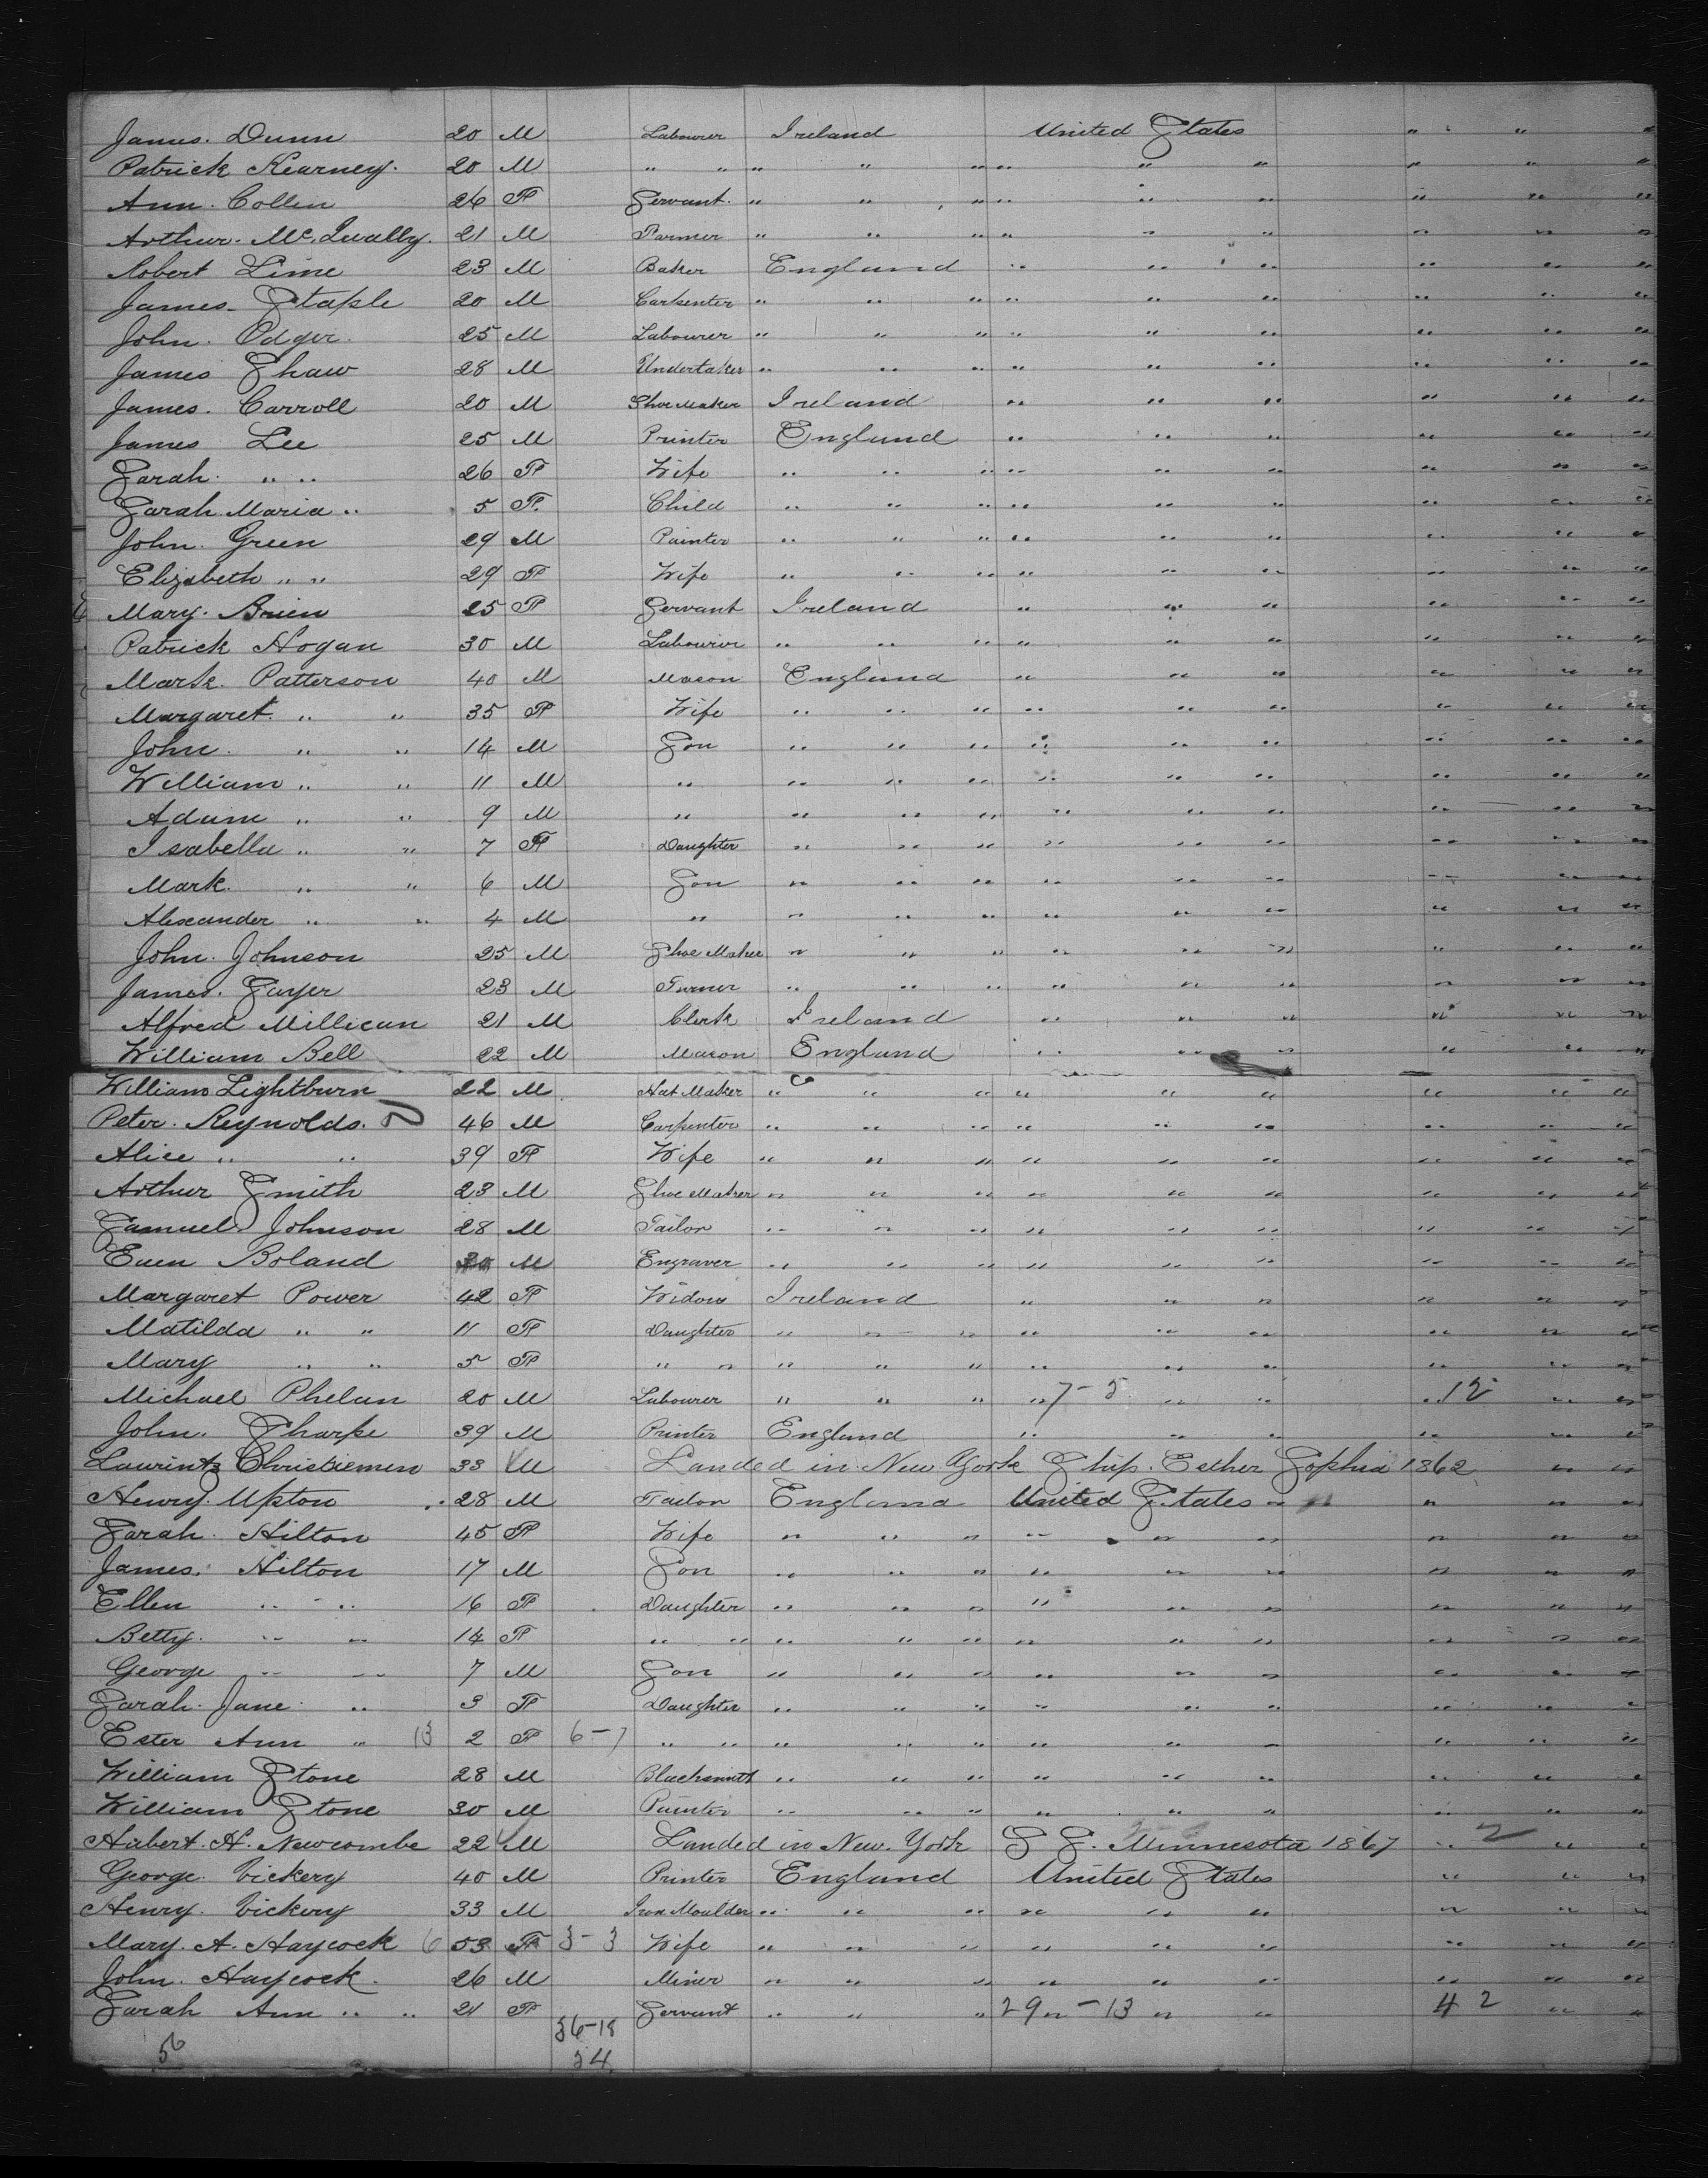 James. Dunn 20 M Labourer Ireland United States " " "
Patrick Kearney. 20 M " " " " " " " " " " "
Ann. Collen 26 F Servant. " " " " " " " " "
Arthur. Mc. 21 M Farmer " " " " " " " " "
Robert Lime 23 M Baker England " " " " " "
James. Staple 20 M Carpenter " " " " " " " " "
John. Odger. 25 M Labourer " " " " " " " " "
James Shaw 28 M Undertaker " " " " " " " " "
James. Carroll 20 M Shoe Maker Ireland " " " " " "
James Lee 25 M Printer England " " " " " "
Sarah. " " 26 F Wife " " " " " " " " "
Sarah Maria " 5 F. Child " " " " " " " " "
John. Green 29 M Painter " " " " " " " " "
Elizabeth " " 29 F Wife " " " " " " " " "
Mary. Brien 25 F Servant Ireland " " " " " "
Patrick Hogan 30 M Labourer " " " " " " " " "
Mark. Patterson 40 M Mason England " " " " " "
Margaret. " " 35 F Wife " " " " " " " " "
John. " " 14 M Son " " " " " " " " "
William " " 11 M " " " " " " " " " "
Adam " " 9 M " " " " " " " " " "
Isabella " " 7 F Daughter " " " " " " " " "
Mark. " " 6 M Son " " " " " " " " "
Alexander " " 4 M " " " " " " " " " "
John. Johnson 25 M Shoe Maker " " " " " " " " "
James. 23 M Turner " " " " " " " " "
Alfred Millican 21 M Clerk Ireland " " " " " "
William Bell 22 M Mason England " " " " " "
William Lightburn 22 M Hat Maker " " " " " " " " "
Peter. Reynolds. 46 M Carpenter " " " " " " " " "
Alice " " 39 F Wife " " " " " " " " "
Arthur Smith 23 M Shoe Maker " " " " " " " " "
Samuel Johnson 28 M Tailor " " " " " " " " "
Euen Boland M Engraver " " " " " " " " "
Margaret Power 42 F Widow Ireland " " " " " "
Matilda " " 11 F Daughter " " " " " " " " "
Mary " " 5 F " " " " " " " " " " "
Michael Phelan 20 M Labourer " " " " 7-5 " " " 12 " "
John. Sharpe 39 M Printer England " " " " " "
Laurintz Christiemen 33 M Landed in New York Ship. Esther Sophia 1862 " "
Henry. Upton 28 M Tailor England United States " " " " "
Sarah. Hilton 45 F Wife " " " " " " " " "
James. Hilton 17 M Son " " " " " " " " "
Ellen " " 16 F Daughter " " " " " " " " "
Betty. " " 14 F " " " " " " " " " " "
George " " 7 M Son " " " " " " " " "
Sarah. Jane " 3 F Daughter " " " " " " " " "
Ester Ann " 13 2 F 6-7 " " " " " " " " " " "
William Stone 28 M Blacksmith " " " " " " " " "
William Stone 30 M Painter " " " " " " " " "
Hubert. H. Newcombe 22 M Landed in New. York S S. Minnesota 1867 " 2 " "
George. Vickery 40 M Printer England United States " " "
Henry. Vickery 33 M Iron Moulder " " " " " " " " "
Mary. A. Haycock 6 53 F 3-3 Wife " " " " " " " " "
John. Haycock. 26 M Miner " " " " " " " " "
Sarah Ann " " 21 F Servant " " " 29 " - 13 " " 42 " "
56 36-18
54